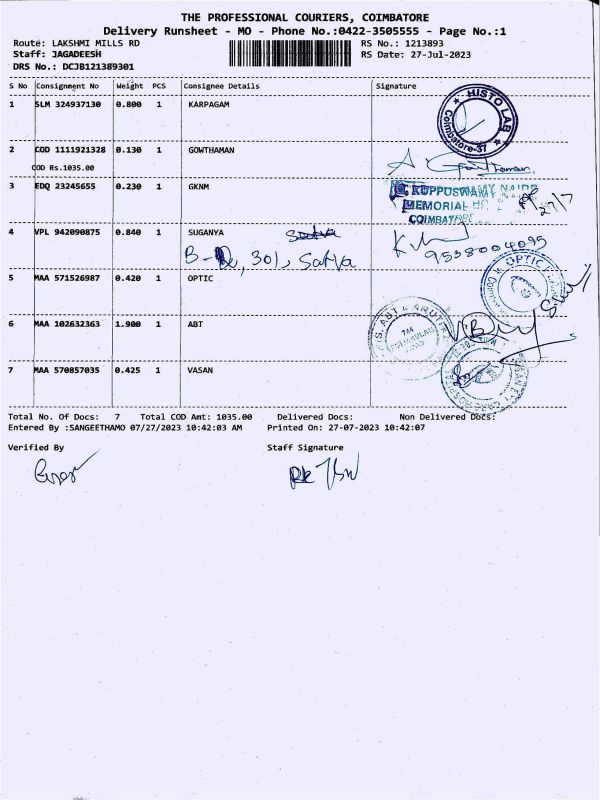 THE PROFESSIONAL COURIERS, COIMBATORE
Delivery Runsheet - MO - Phone No.:0422-3505555 - Page No.:1
Route: LAKSHMI MILLS RD RS No.: 1213893
Staff: JAGADEESH RS Date: 27-Jul-2023
DRS No.: DCJB121389301
S No Consignment No Weight PCS Consignee Details Signature
1 SLM 324937130 0.800 1 KARPAGAM
HISTO LAB
Coimbatore-37
2 COD 1111921328 0.130 1 GOWTHAMAN
COD Rs.1035.00
3 EDQ 23245655 0.230 1 GKNM
G. KUPPUSWAMY NAIDU
MEMORIAL
COIMBATORE
27/7
4 VPL 942090875 0.840 1 SUGANYA
301, Satva
9538004095
5 MAA 571526987 0.420 1 OPTIC
OPTIC
6 MAA 102632363 1.900 1 ABT
7 MAA 570857035 0.425 1 VASAN
Total No. Of Docs: 7 Total COD Amt: 1035.00 Delivered Docs: Non Delivered Docs:
Entered By :SANGEETHAMO 07/27/2023 10:42:03 AM Printed On: 27-07-2023 10:42:07
Verified By Staff Signature